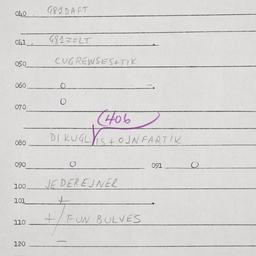 040 G82DAFT
041
050 CUGREWSES+TIK
060 O
070 O
(406
080 DIKUGL IS+OJNFARTIK
090 O 091 O
100 JEDEREJNER
101 +
110 +/FUN BULVES
120 –